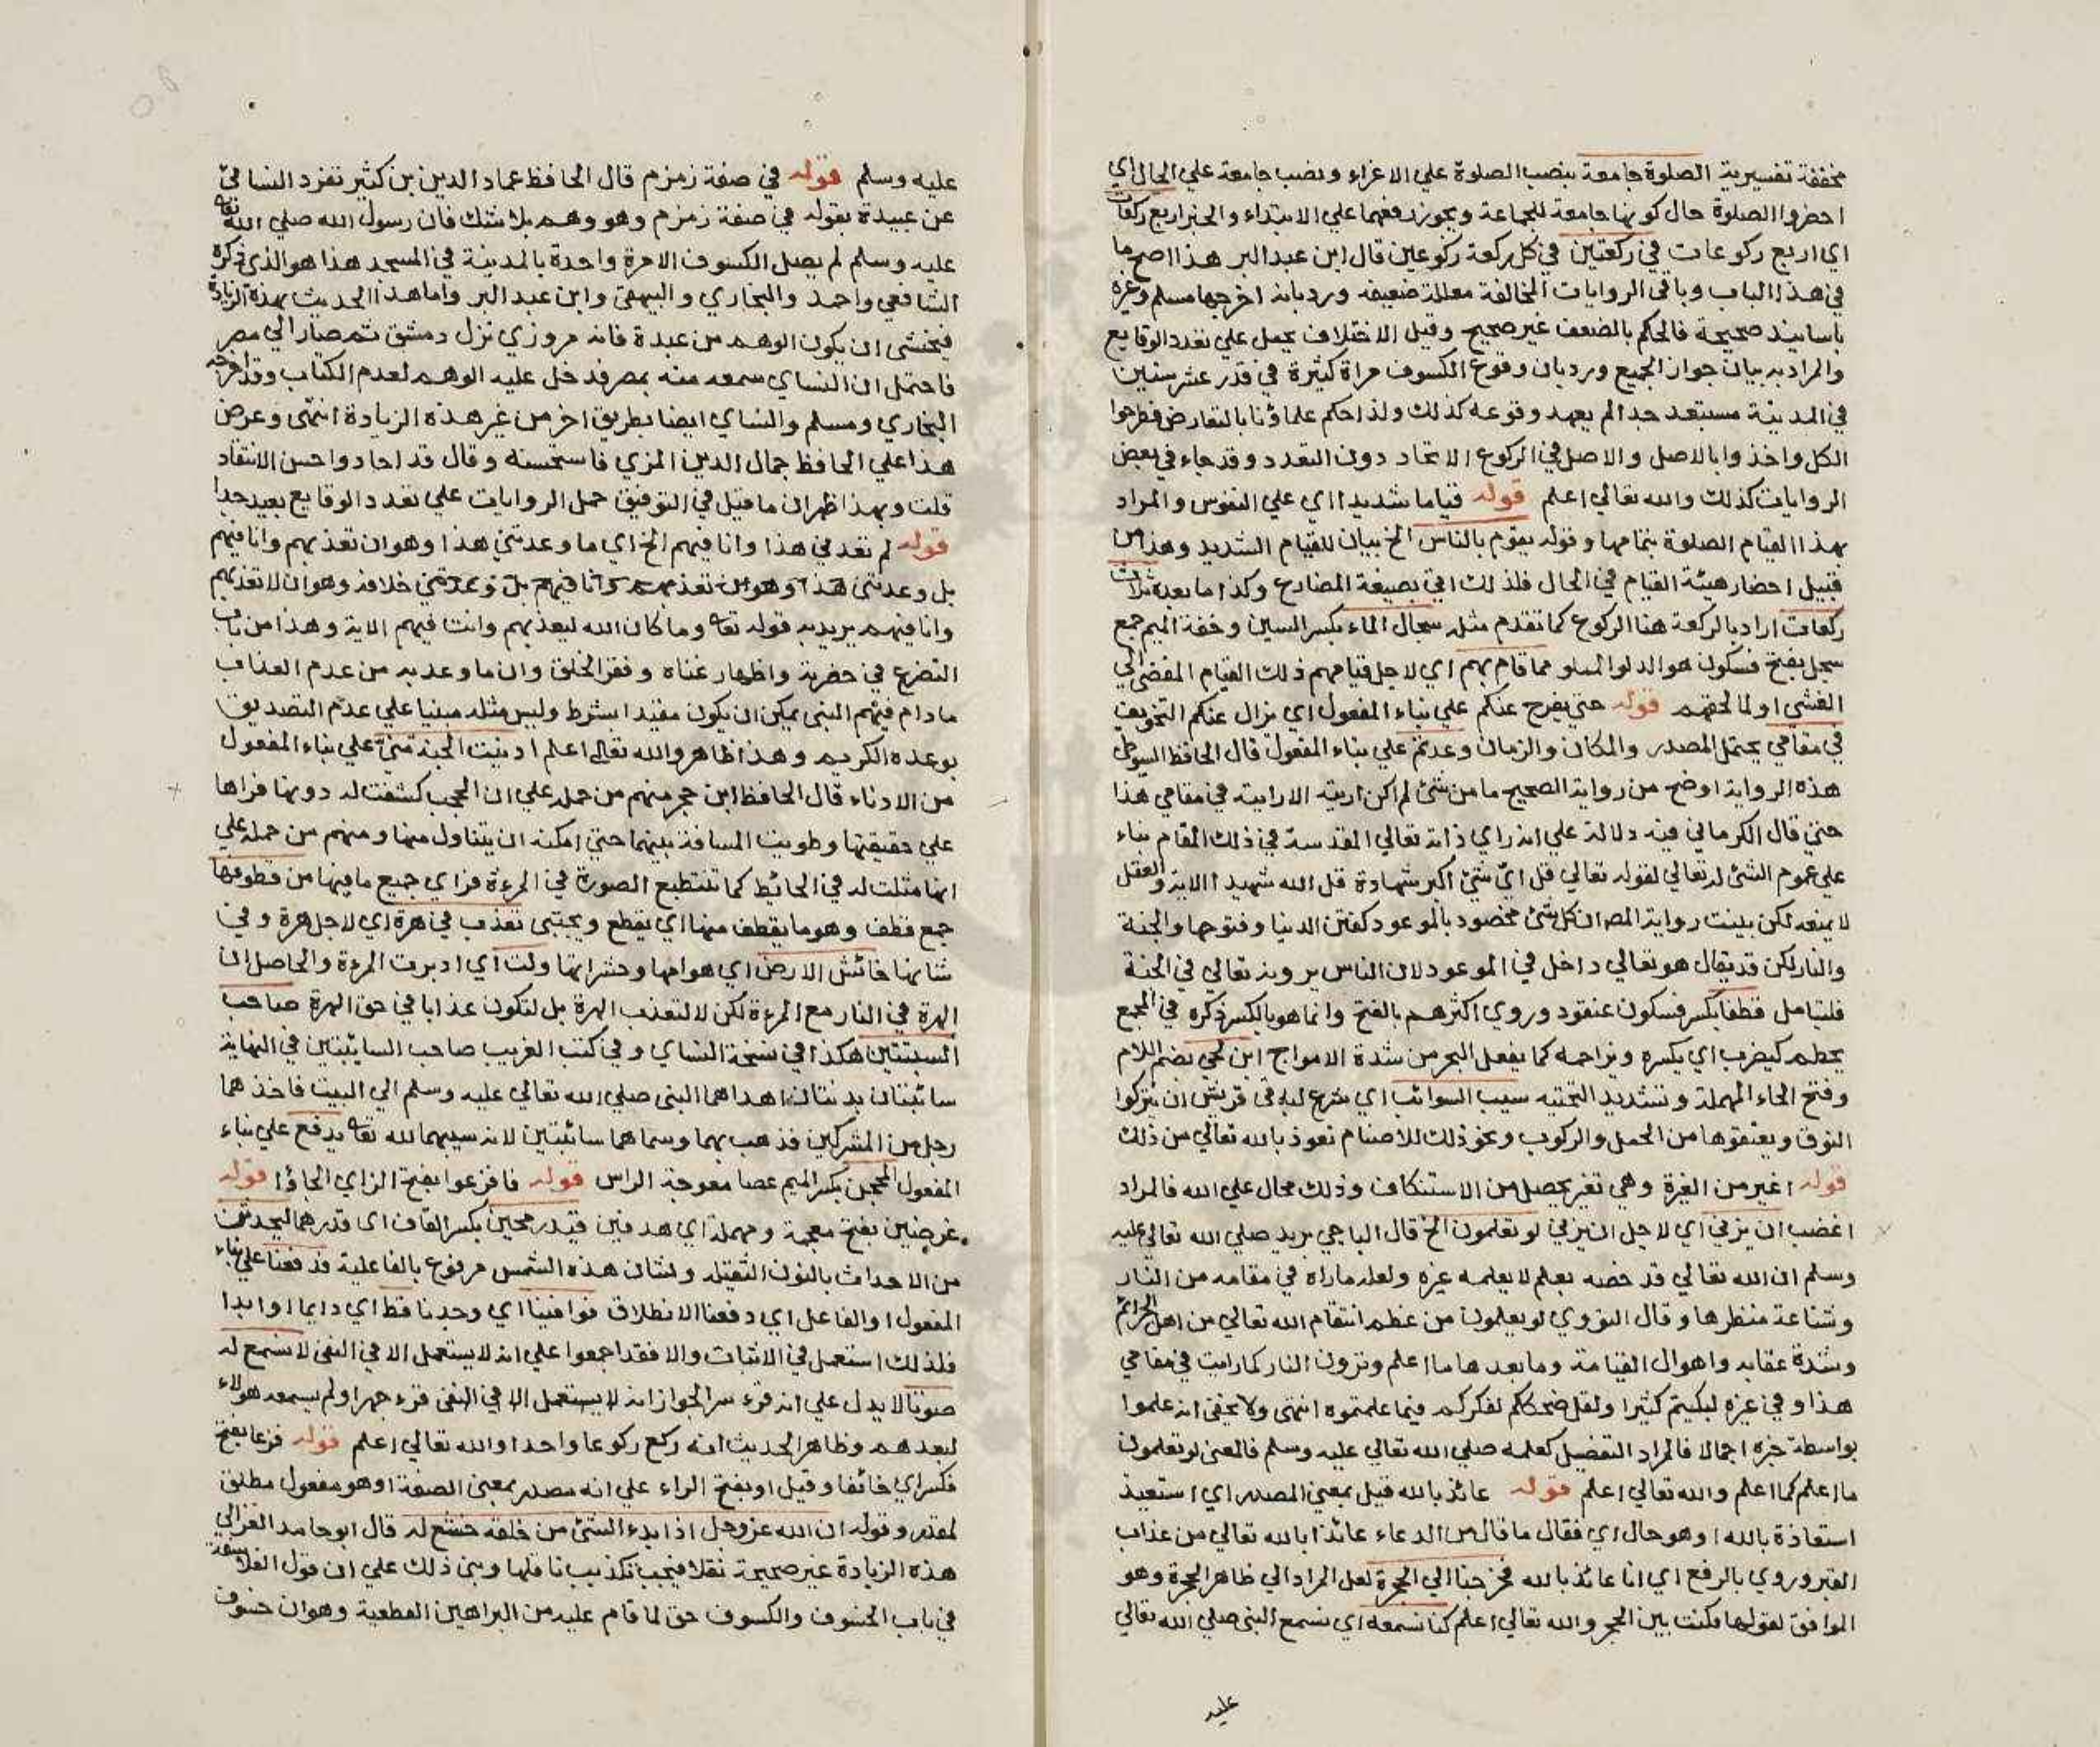 مخففة تفسيرية الصلوة جامعة بنصب الصلوة علي الاغراء ونصب جامعة علي الحال اي
احضروا الصلوة حال كونها جامعة للجماعة ويجوز رفعهما علي الابتداء والخبر اربع ركعات
اي اربع ركوعات في ركعتين في كل ركعة ركوعين قال ابن عبد البر هذا اصح ما
في هذا الباب وباقي الروايات المخالفة معللة ضعيفه ورد بانه اخرجها مسلم وغيره
باسانيد صحيحة فالحكم بالضعف غير صحيح وقيل الاختلاف يحمل علي تعدد الوقايع
والمراد به بيان جواز الجميع ورد بان وقوع الكسوف مراة كثيرة في قدر عشر سنين
في المدينة مستبعد جدا لم يعهد وقوعه كذلك ولذا حكم علماؤنا بالتعارض فطرحوا
الكل واخذوا بالاصل والاصل في الركوع الاتحاد دون التعدد وقد جاء في بعض
الروايات كذلك والله تعالي اعلم قوله قياما شديدا اي علي النفوس والمراد
بهذا القيام الصلوة بتمامها وقوله يقوم بالناس الخ بيان للقيام الشديد وهذا من
قبيل احضار هيئة القيام في الحال فلذلك اتي بصيغة المضارع وكذا ما بعده ثلاث
ركعات اراد بالركعة هنا الركوع كما تقدم مثله سجال الماء بكسر السين وخفة الميم جمع
سجل بفتح فسكون هو الدلو المملو مما قام بهم اي لاجل قيامهم ذلك القيام المفضي الي
الغشي او لما لحقهم قوله حتي يفرج عنكم علي بناء المفعول اي يزال عنكم التخويف
في مقامي يحتمل المصدر والمكان والزمان وعدتم علي بناء المفعول قال الحافظ السيوطي
هذه الرواية اوضح من رواية الصحيح ما من شئ لم اكن اريته الا رايته في مقامي هذا
حتي قال الكرماني فيه دلالة علي انه راي ذاته تعالي المقدسة في ذلك المقام بناء
علي عموم الشئ له تعالي لقوله تعالي قل اي شئ اكبر شهادة قل الله شهيد الاية والعقل
لا يمنعه لكن بينت رواية المص ان كل شئ مخصود بالموعود كفتن الدنيا وفتوحها والجنة
والنار لكن قد يقال هو تعالي داخل في الموعود لان الناس يرونه تعالي في الجنة
فليتامل قطفا بكسر فسكون عنقود وروي اكثرهم بالفتح وانما هو بالكسر ذكره في المجمع
يحطم كيضرب اي يكسره ويزاحمه كما يفعل البحر من شدة الامواج ابن لحي بضم اللام
وفتح الحاء المهملة وتشديد التحتيه سيب السوائب اي شرع لباقي قريش ان يتركوا
النوق ويعتقوها من الحمل والركوب ونحو ذلك للاصنام نعوذ بالله تعالي من ذلك
قوله اغير من الغيرة وهي تغير يحصل من الاستنكاف وذلك محال علي الله فالمراد
اغضب ان يزني اي لاجل ان يزني لو تعلمون الخ قال الباجي يريد صلي الله تعالي عليه
وسلم ان الله تعالي قد خصه بعلم لا يعلمه غيره ولعله ما راه في مقامه من النار
وشناعة منظرها وقال النووي لو يعلمون من عظم انتقام الله تعالي من اهل الجرائم
وشدة عقابه واهوال القيامة وما بعدها ما اعلم وترون النار كما رايت في مقامي
هذا وفي غيره لبكيتم كثيرا ولقل ضحككم لفكركم فيما علمتموه انتهى ولا يخفى انه علموا
بواسطة خبره اجمالا فالمراد التفضيل كعلمه صلي الله تعالي عليه وسلم فالمعني لو تعلمون
ما اعلم كما اعلم والله تعالي اعلم قوله عائذ بالله قيل بمعني المصدر اي استعيذ
استعاذة بالله او هو حال اي فقال ما قال من الدعاء عائذا بالله تعالي من عذاب
القبر وروي بالرفع اي انا عائذ بالله فخرجنا الي الحجرة لعل المراد الي ظاهر الحجرة وهو
الموافق لقولها فكنت بين الحجر والله تعالي اعلم كنا نسمعه اي نسمع النبي صلي الله تعالي
عليه
عليه وسلم قوله في صفة زمزم قال الحافظ عماد الدين بن كثير تفرد النسائي
عن عبيدة بقوله في صفة زمزم وهو وهم بلا شك فان رسول الله صلي الله تعا
عليه وسلم لم يصل الكسوف الا مرة واحدة بالمدينة في المسجد هذا هو الذي ذكره
الشافعي واحمد والبخاري والبيهقي وابن عبد البر واما هذا الحديث بهذه الزيادة
فيخشى ان يكون الوهم من عبدة فانه مروزي نزل دمشق ثم صار الي مصر
فاحتمل ان النساي سمعه منه بمصر فدخل عليه الوهم لعدم الكتاب وقد اخرجه
البخاري ومسلم والنساي ايضا بطريق اخر من غير هذه الزيادة انتهى وعرض
هذا علي الحافظ جمال الدين المزي فاستحسنه وقال قد اجاد واحسن الانتقاد
قلت وبهذا ظهر ان ما قيل في التوفيق حمل الروايات علي تعدد الوقايع بعيد جدا
قوله لم تعدني هذا وانا فيهم الخ اي ما وعدتني هذا وهو ان تعذبهم وانا فيهم
بل وعدتني هذا وهو ان تعذبهم وانا فيهم بل وعدتني خلافه وهو ان لا تعذبهم
وانا فيهم يريد به قوله تعا وما كان الله ليعذبهم وانت فيهم الاية وهذا من باب
التضرع في حضرته واظهار غناه وفقر الخلق وان ما وعد به من عدم العذاب
ما دام فيهم النبي يمكن ان يكون مقيدا بشرط وليس مثله مبنيا علي عدم التصديق
بوعده الكريم وهذا ظاهر والله تعالي اعلم ادنيت الجنة مني علي بناء المفعول
من الادناء قال الحافظ ابن حجر منهم من حمله علي ان الحجب كشفت له دونها فراها
علي حقيقتها وطويت المسافة بينهما حتي امكنه ان يتناول منها ومنهم من حمله علي
انها مثلت له في الحائط كما تنطبع الصورة في المرءة فراي جميع ما فيها من قطوفها
جمع قطف وهو ما يقطف منها اي يقطع ويجتبى تعذب في هرة اي لاجل هرة وفي
شانها خاشش الارض اي هوامها وحشراتها ولت اي ادبرت المرءة والحاصل ان
الهرة في النار مع المرءة لكن لا لتعذب الهرة بل لتكون عذابا في حق الهرة صاحب
السبتتين هكذا في نسخة النساي وفي كتب الغريب صاحب السائبتين في النهاية
سائبتان بدنتان اهداهما النبي صلي الله تعالي عليه وسلم الي البيت فاخذهما
رجل من المشركين فذهب بهما وسماهما سائبتين لانه سيبهما لله تعا يدفع علي بناء
المفعول المحجن بكسر الميم عصا معوجة الراس قوله فافزعوا بفتح الزاي الجاؤا قوله
غرضين بفتح معجمة ومهملة اي هدفين قيد رمحين بكسر القاف اي قدرهما ليحدثن
من الاحداث بالنون الثقيلة ولشان هذه الشمس مرفوع بالفاعلية فدفعنا علي بناء
المفعول او الفاعل اي دفعنا الانطلاق فوافينا اي وجدنا قط اي دايما او ابدا
فلذلك استعمل في الاثبات والا فقد اجمعوا علي انه لا يستعمل الا في النفي لا نسمع له
صوتا لا يدل علي انه قرء سرا لجواز انه لا يستعمل الا في النفي قرء جهرا ولم يسمعه هولاء
لبعدهم وظاهر الحديث انه ركع ركوعا واحدا والله تعالي اعلم قوله فزعا بفتح
فكسر اي خائفا وقيل او بفتح الراء علي انه مصدر بمعني الصفة او هو مفعول مطلق
لمقدر وقوله ان الله عزوجل اذا بدء لشئ من خلقه خشع له قال ابو حامد الغزالي
هذه الزيادة غير صحيحة نقلا فيجب تكذيب ناقلها وبنى ذلك علي ان قول الفلاسفة
في باب الخسوف والكسوف حق لما قام عليه من البراهين القطعية وهو ان خسوف